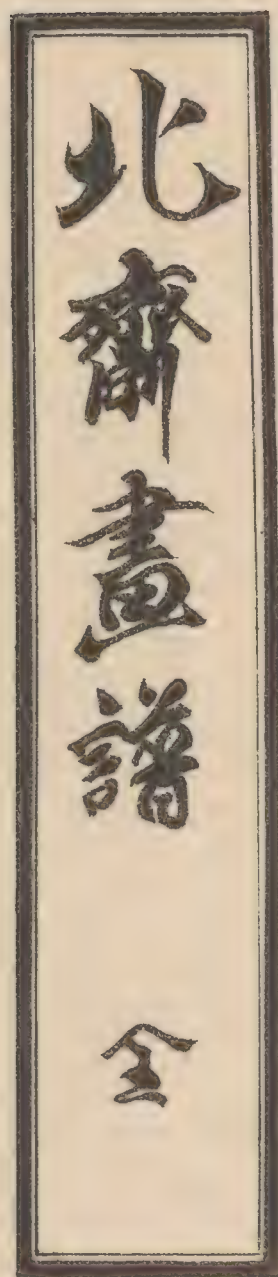 北齋畫譜 全